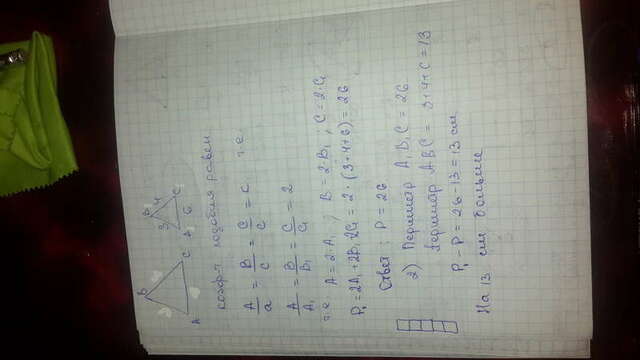 B
A
C
B₁
3
4
A₁
6
C₁
коэфф. подобия равен
A/a = B/c = C/c = c т.е
A/A₁ = B/B₁ = C/C₁ = 2
т.е A = 2·A₁ ; B = 2·B₁ ; C = 2·C₁
P₁ = 2A₁ + 2B₁ 2C₁ = 2·(3+4+6) = 26
Ответ: P = 26
2) Периметр A₁B₁C = 26
периметр ABC = 3+4+C = 13
P₁ - P = 26 - 13 = 13 см
На 13 см больше